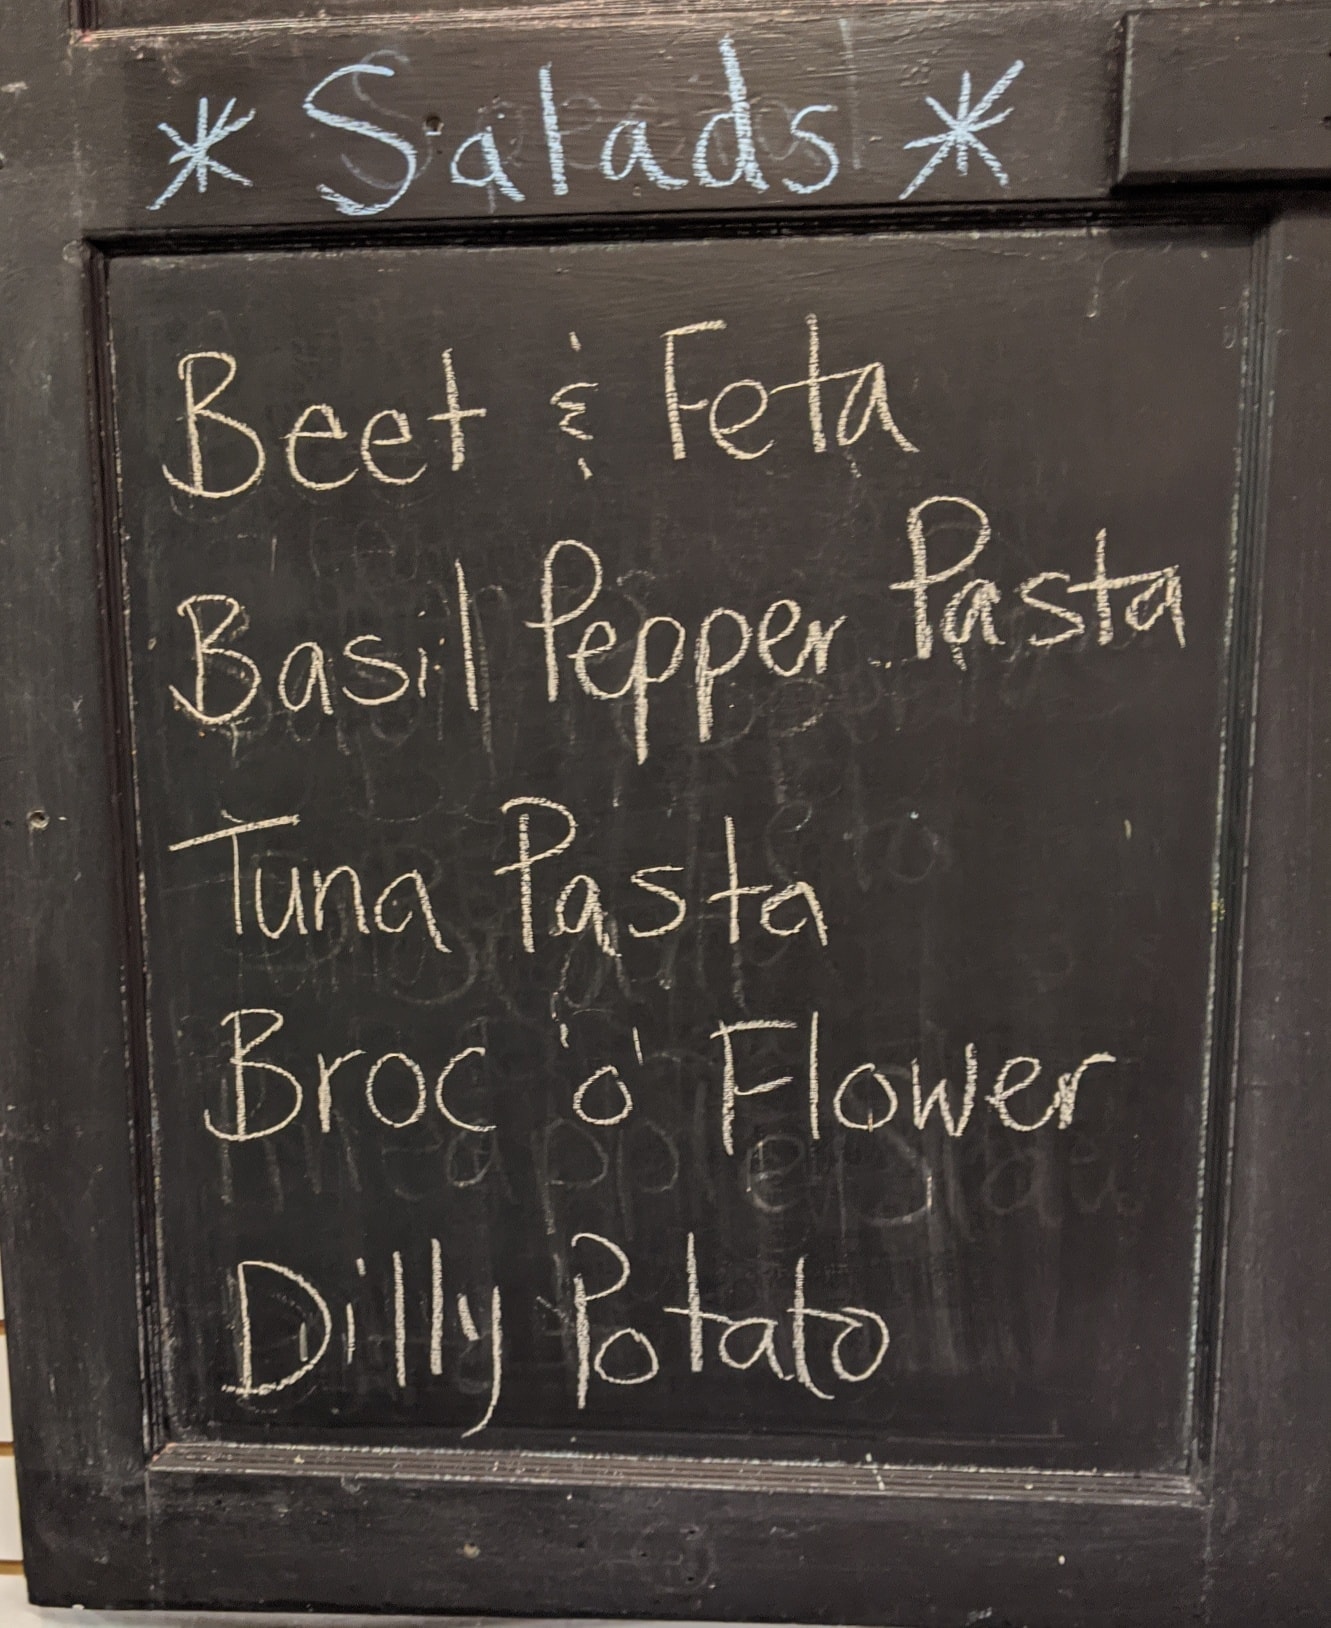 * Salads *
Beet & Feta
Basil Pepper Pasta
Tuna Pasta
Broc 'o' Flower
Dilly Potato